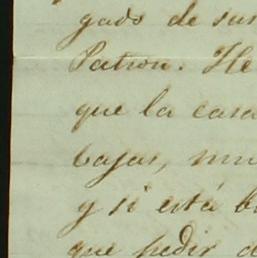 gado de su
Patron. He
que la casa
bajas, mu
y si está b
que pedir d